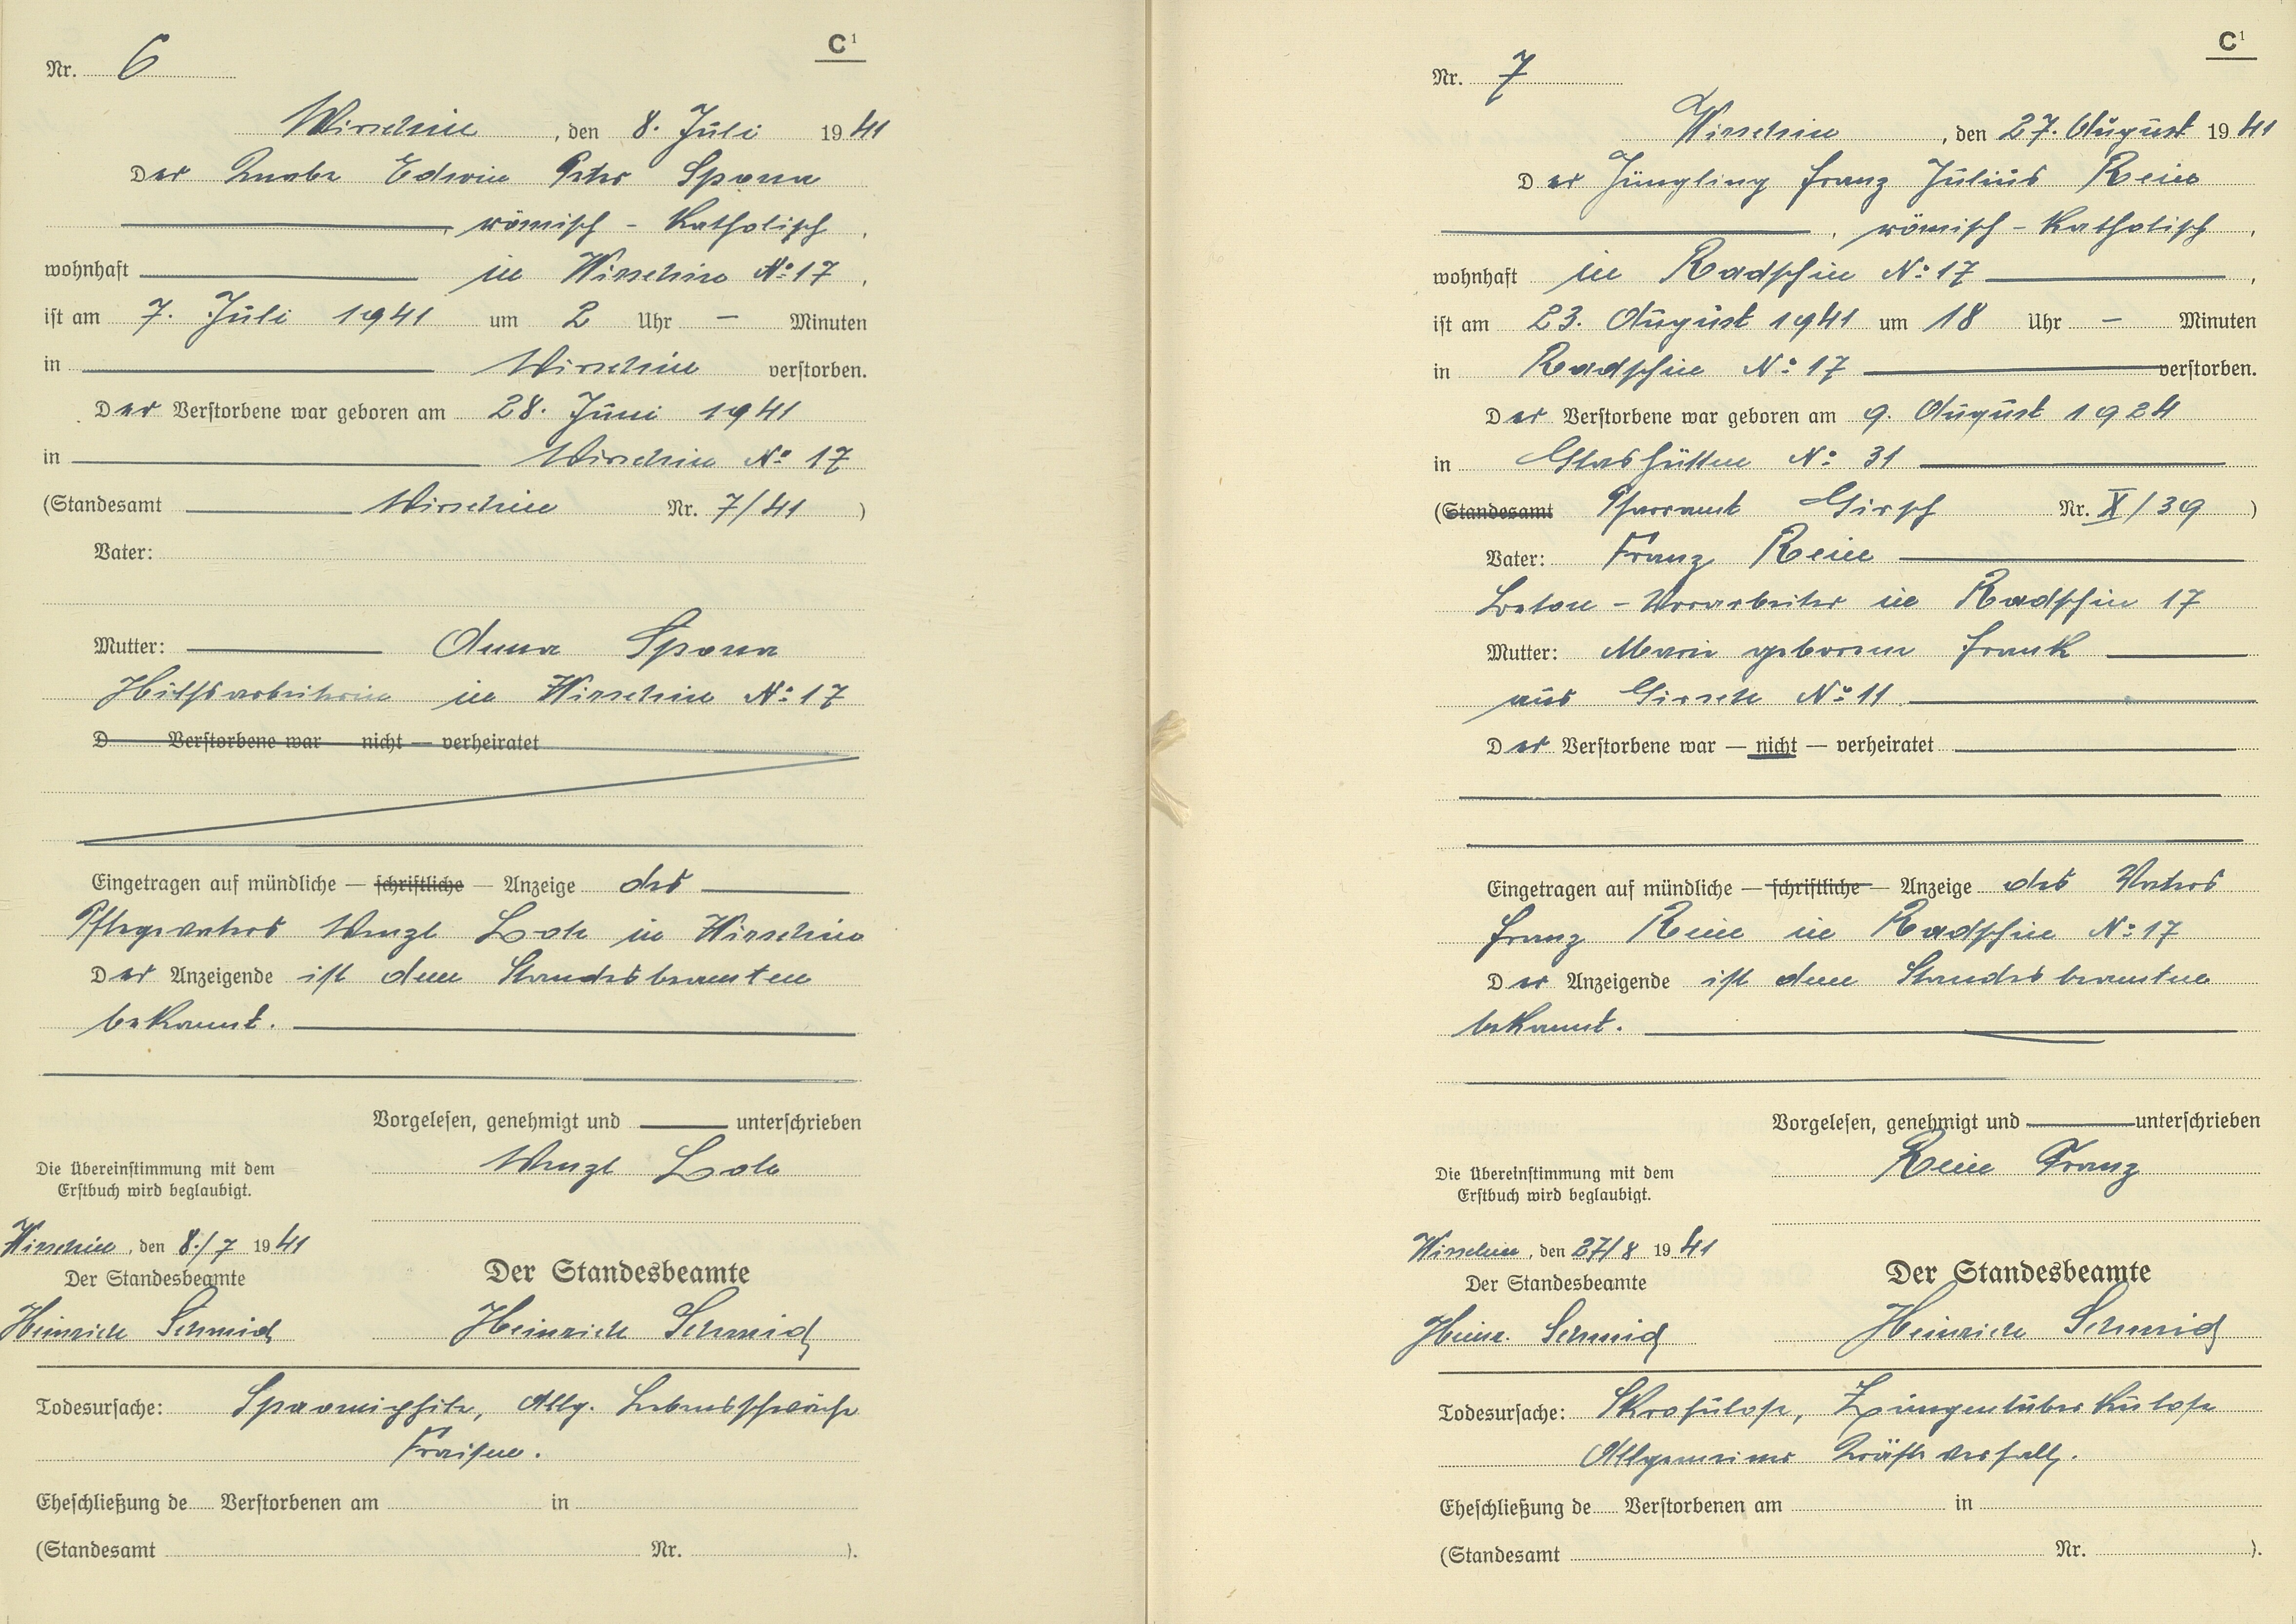 C¹
Nr. 6
Wirschin, den 8. Juli 1941
Der Knabe Edwin Peter Spona
römisch-Katholisch,
wohnhaft in Wirschin No 17,
ist am 7. Juli 1941 um 2 Uhr – Minuten
in Wirschin verstorben.
Der Verstorbene war geboren am 28. Juni 1941
in Wirschin No 17
(Standesamt Wirschin Nr. 7/41)
Vater:
Mutter: Anna Spona
Hilfsarbeiterin in Wirschin No 17
D Verstorbene war — nicht — verheiratet
Eingetragen auf mündliche — schriftliche — Anzeige des
Pflegevaters Wenzl in Wirschin
Der Anzeigende ist dem Standesbeamten
bekannt.
Vorgelesen, genehmigt und unterschrieben
Wenzl
Die Übereinstimmung mit dem
Erstbuch wird beglaubigt.
Wirschin, den 8./7 1941
Der Standesbeamte
Heinrich Schmid
Der Standesbeamte
Heinrich Schmid
Todesursache: Allg. Lebensschwäche
Fraisen.
Eheschließung de Verstorbenen am in
(Standesamt Nr. ).
C¹
Nr. 7
Wirschin, den 27. August 1941
Der Jüngling Franz Julius Rein
, römisch-Katholisch,
wohnhaft in Radschin No 17,
ist am 23. August 1941 um 18 Uhr – Minuten
in Radschin No 17 verstorben.
Der Verstorbene war geboren am 9. August 1924
in Glashütten No 31
(Standesamt Pfarramt Girsch Nr. X/39)
Vater: Franz Rein
Beton-Vorarbeiter in Radschin 17
Mutter: Marie geborene Frank
aus Girsch No 11
Der Verstorbene war — nicht — verheiratet
Eingetragen auf mündliche — schriftliche — Anzeige des Vaters
Franz Rein in Radschin No 17
Der Anzeigende ist dem Standesbeamten
bekannt.
Vorgelesen, genehmigt und unterschrieben
Rein Franz
Die Übereinstimmung mit dem
Erstbuch wird beglaubigt.
Wirschin, den 27/8 1941
Der Standesbeamte
Heinr. Schmid
Der Standesbeamte
Heinrich Schmid
Todesursache: Skrofulose, Lungentuberkulose
Allgemeiner Kräfteverfall.
Eheschließung de Verstorbenen am in
(Standesamt Nr. ).